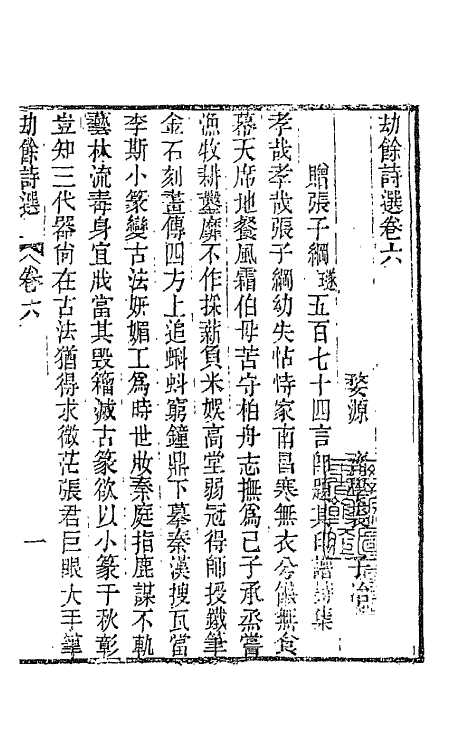 劫餘詩選卷六
婺源 齊學裘 子冶
贈張子綱璲五百七十四言即題其印譜詩集
孝哉孝哉張子綱幼失怙恃家南昌寒無衣兮饑無食
幕天席地餐風霜伯母苦守柏舟志撫爲己子承烝嘗
漁牧耕鑿靡不作採薪負米娛高堂弱冠得師授鐵筆
金石刻畫傳四方上追蝌蚪窮鐘鼎下摹秦漢搜瓦當
李斯小篆變古法妍媚工爲時世妝秦庭指鹿謀不軌
藝林流毒身宜戕當其毀籀滅古篆欲以小篆千秋彰
豈知三代器尙在古法猶得求微茫張君巨眼大手筆
劫餘詩選 卷六 一